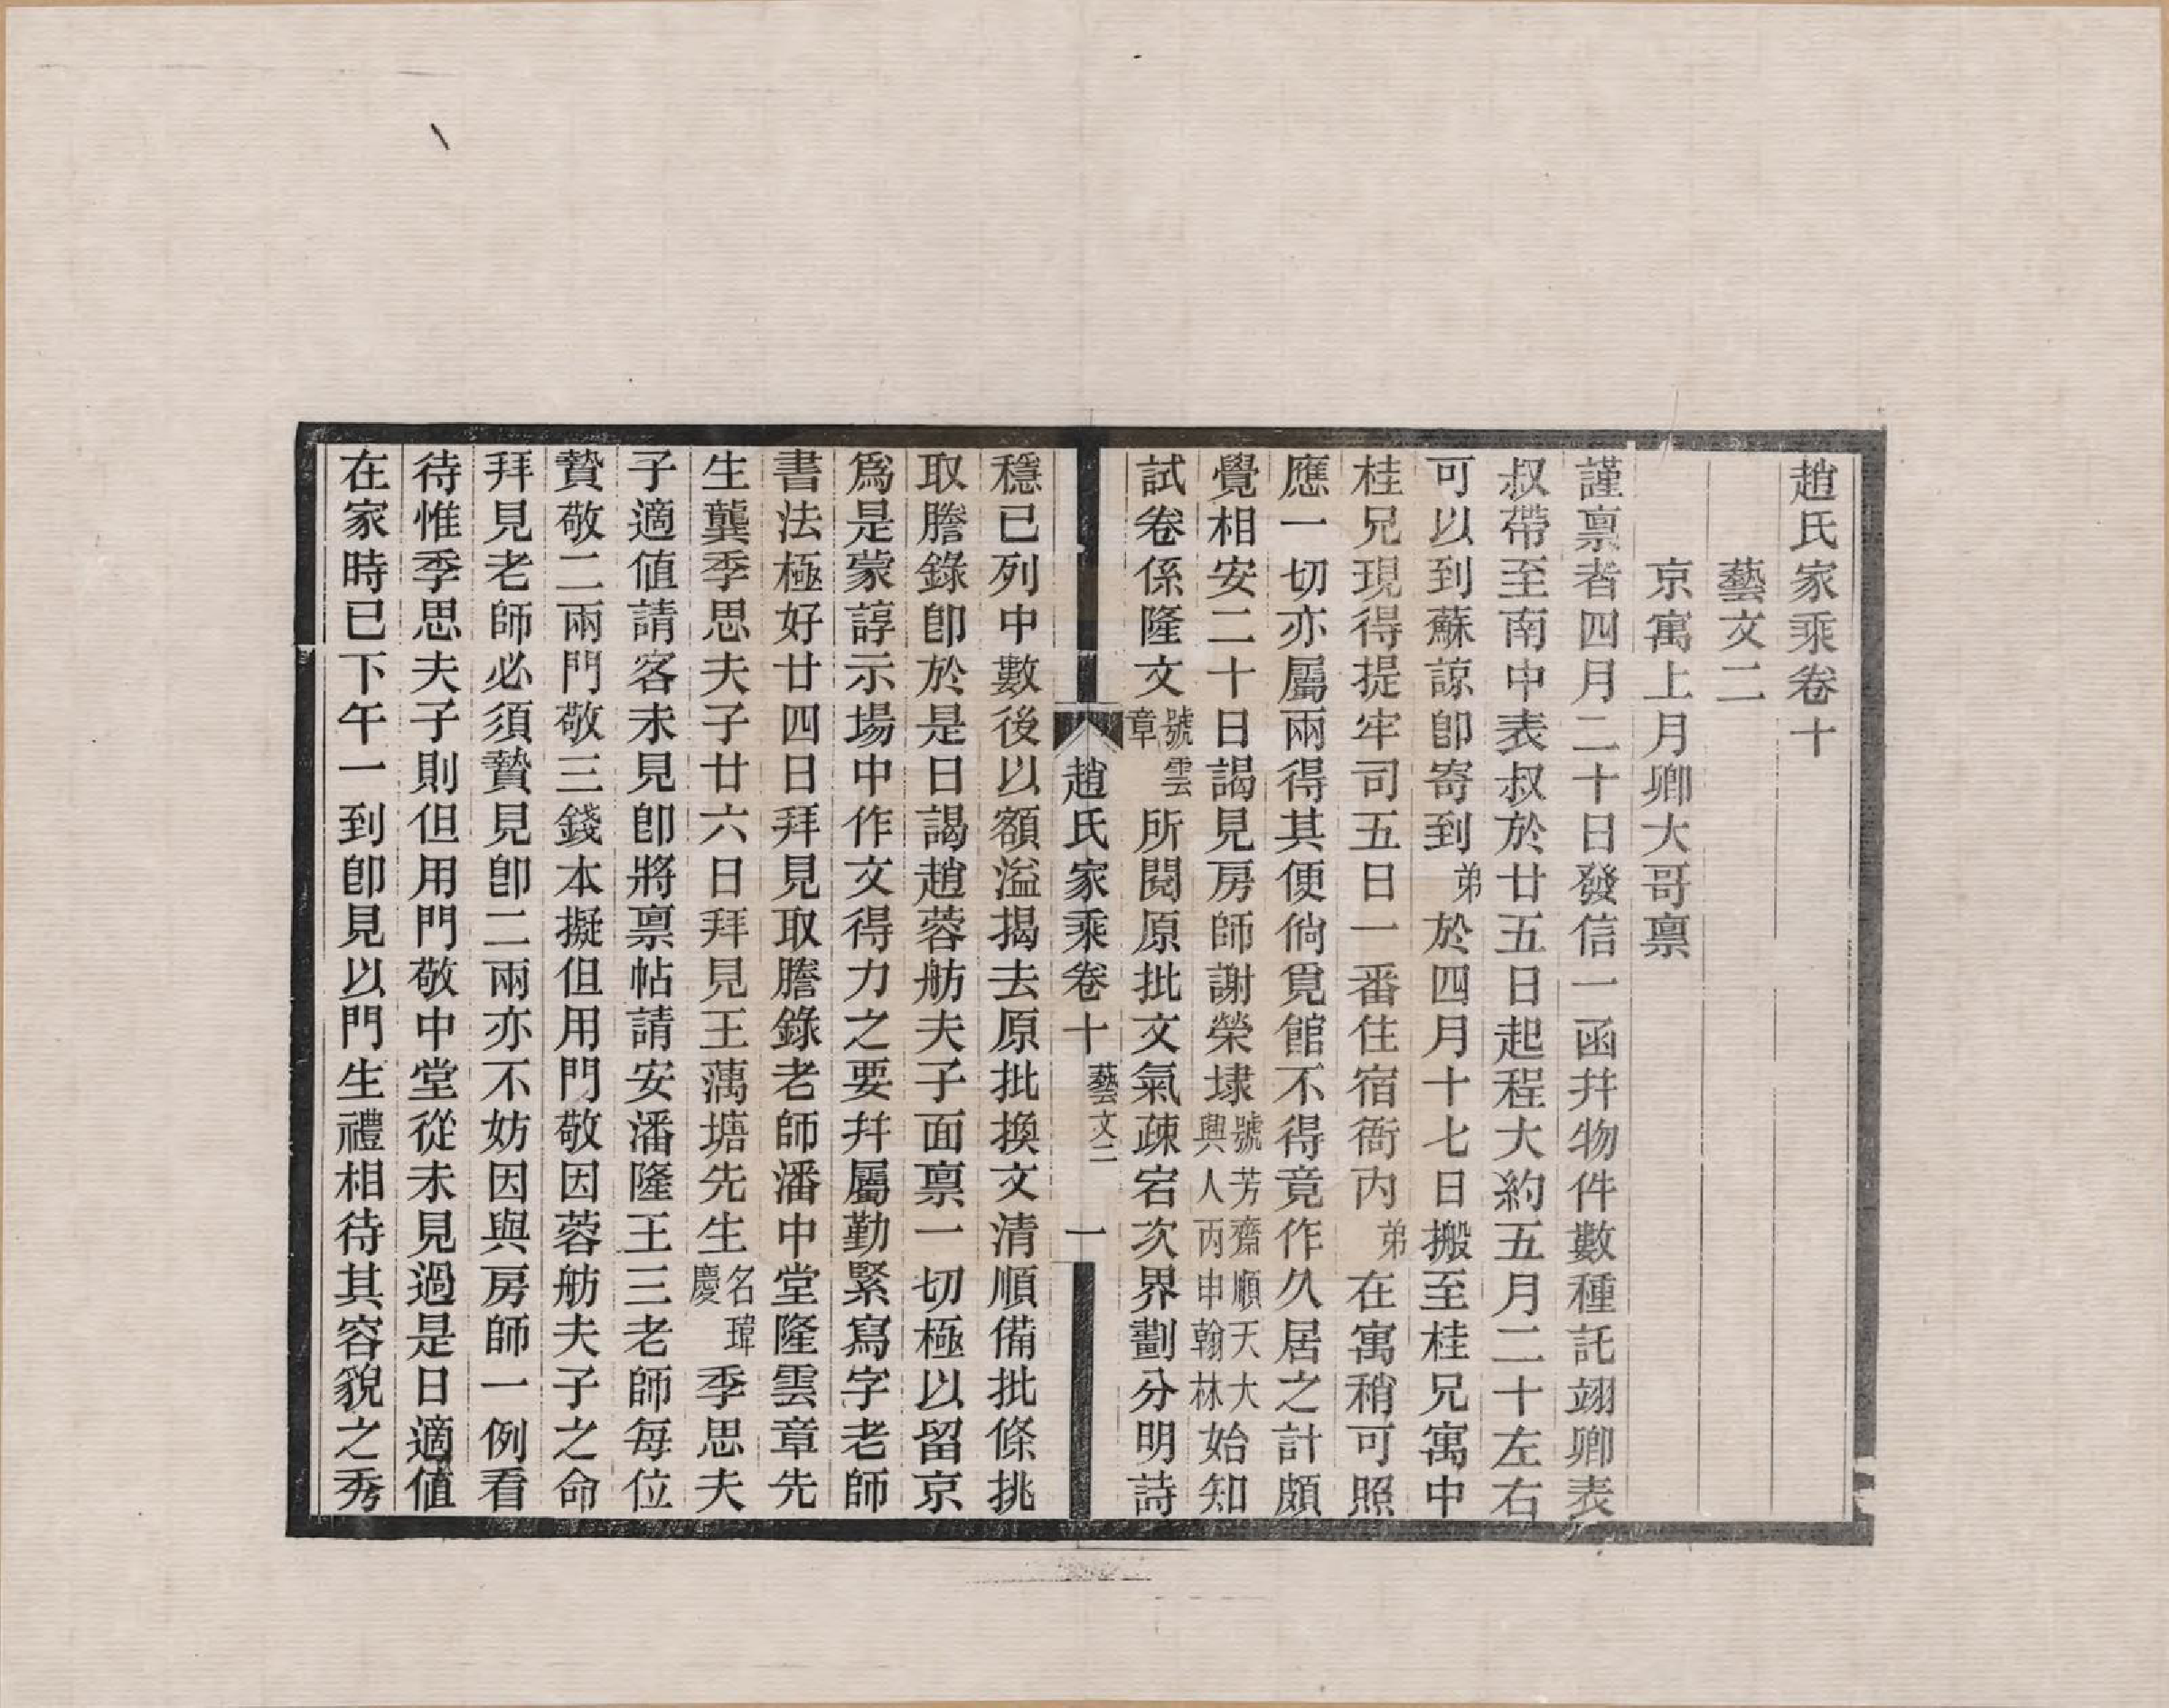 趙氏家乘卷十
藝文二
京寓上月卿大哥禀
謹禀者四月二十日發信一函幷物件數種託翊卿表
叔帶至南中表叔於廿五日起程大約五月二十左右
可以到蘇諒卽寄到弟於四月十七日搬至桂兄寓中
桂兄現得提牢司五日一番住宿衙內弟在寓稍可照
應一切亦屬兩得其便倘覓館不得竟作久居之計頗
覺相安二十日謁見房師謝榮埭號芳齋順天大興人丙申翰林始知
試卷係隆文號雲章所閱原批文氣疎宕次界劃分明詩
趙氏家乘卷十 藝文二 一
穩已列中數後以額溢揭去原批換文清順備批條挑
取謄錄卽於是日謁趙蓉舫夫子面禀一切極以留京
爲是蒙諄示場中作文得力之要幷屬勤緊寫字老師
書法極好廿四日拜見取謄錄老師潘中堂隆雲章先
生龔季思夫子廿六日拜見王藕塘先生名瑋慶季思夫
子適値請客未見卽將禀帖請安潘隆王三老師每位
贄敬二兩門敬三錢本擬但用門敬因蓉舫夫子之命
拜見老師必須贄見卽二兩亦不妨因與房師一例看
待惟季思夫子則但用門敬中堂從未見過是日適値
在家時已下午一到卽見以門生禮相待其容貌之秀